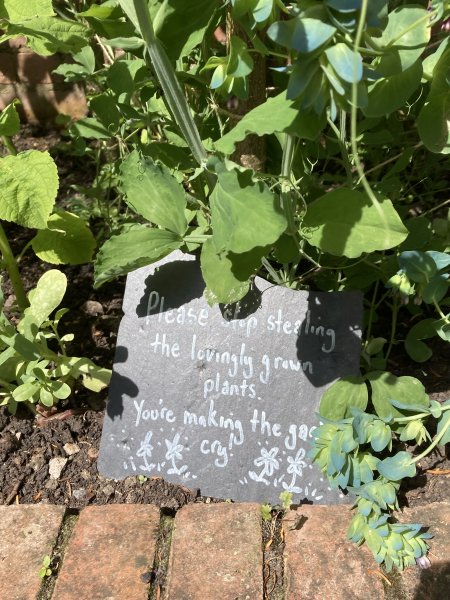 Please stop stealing
the lovingly grown
plants.
You're making the
cry!